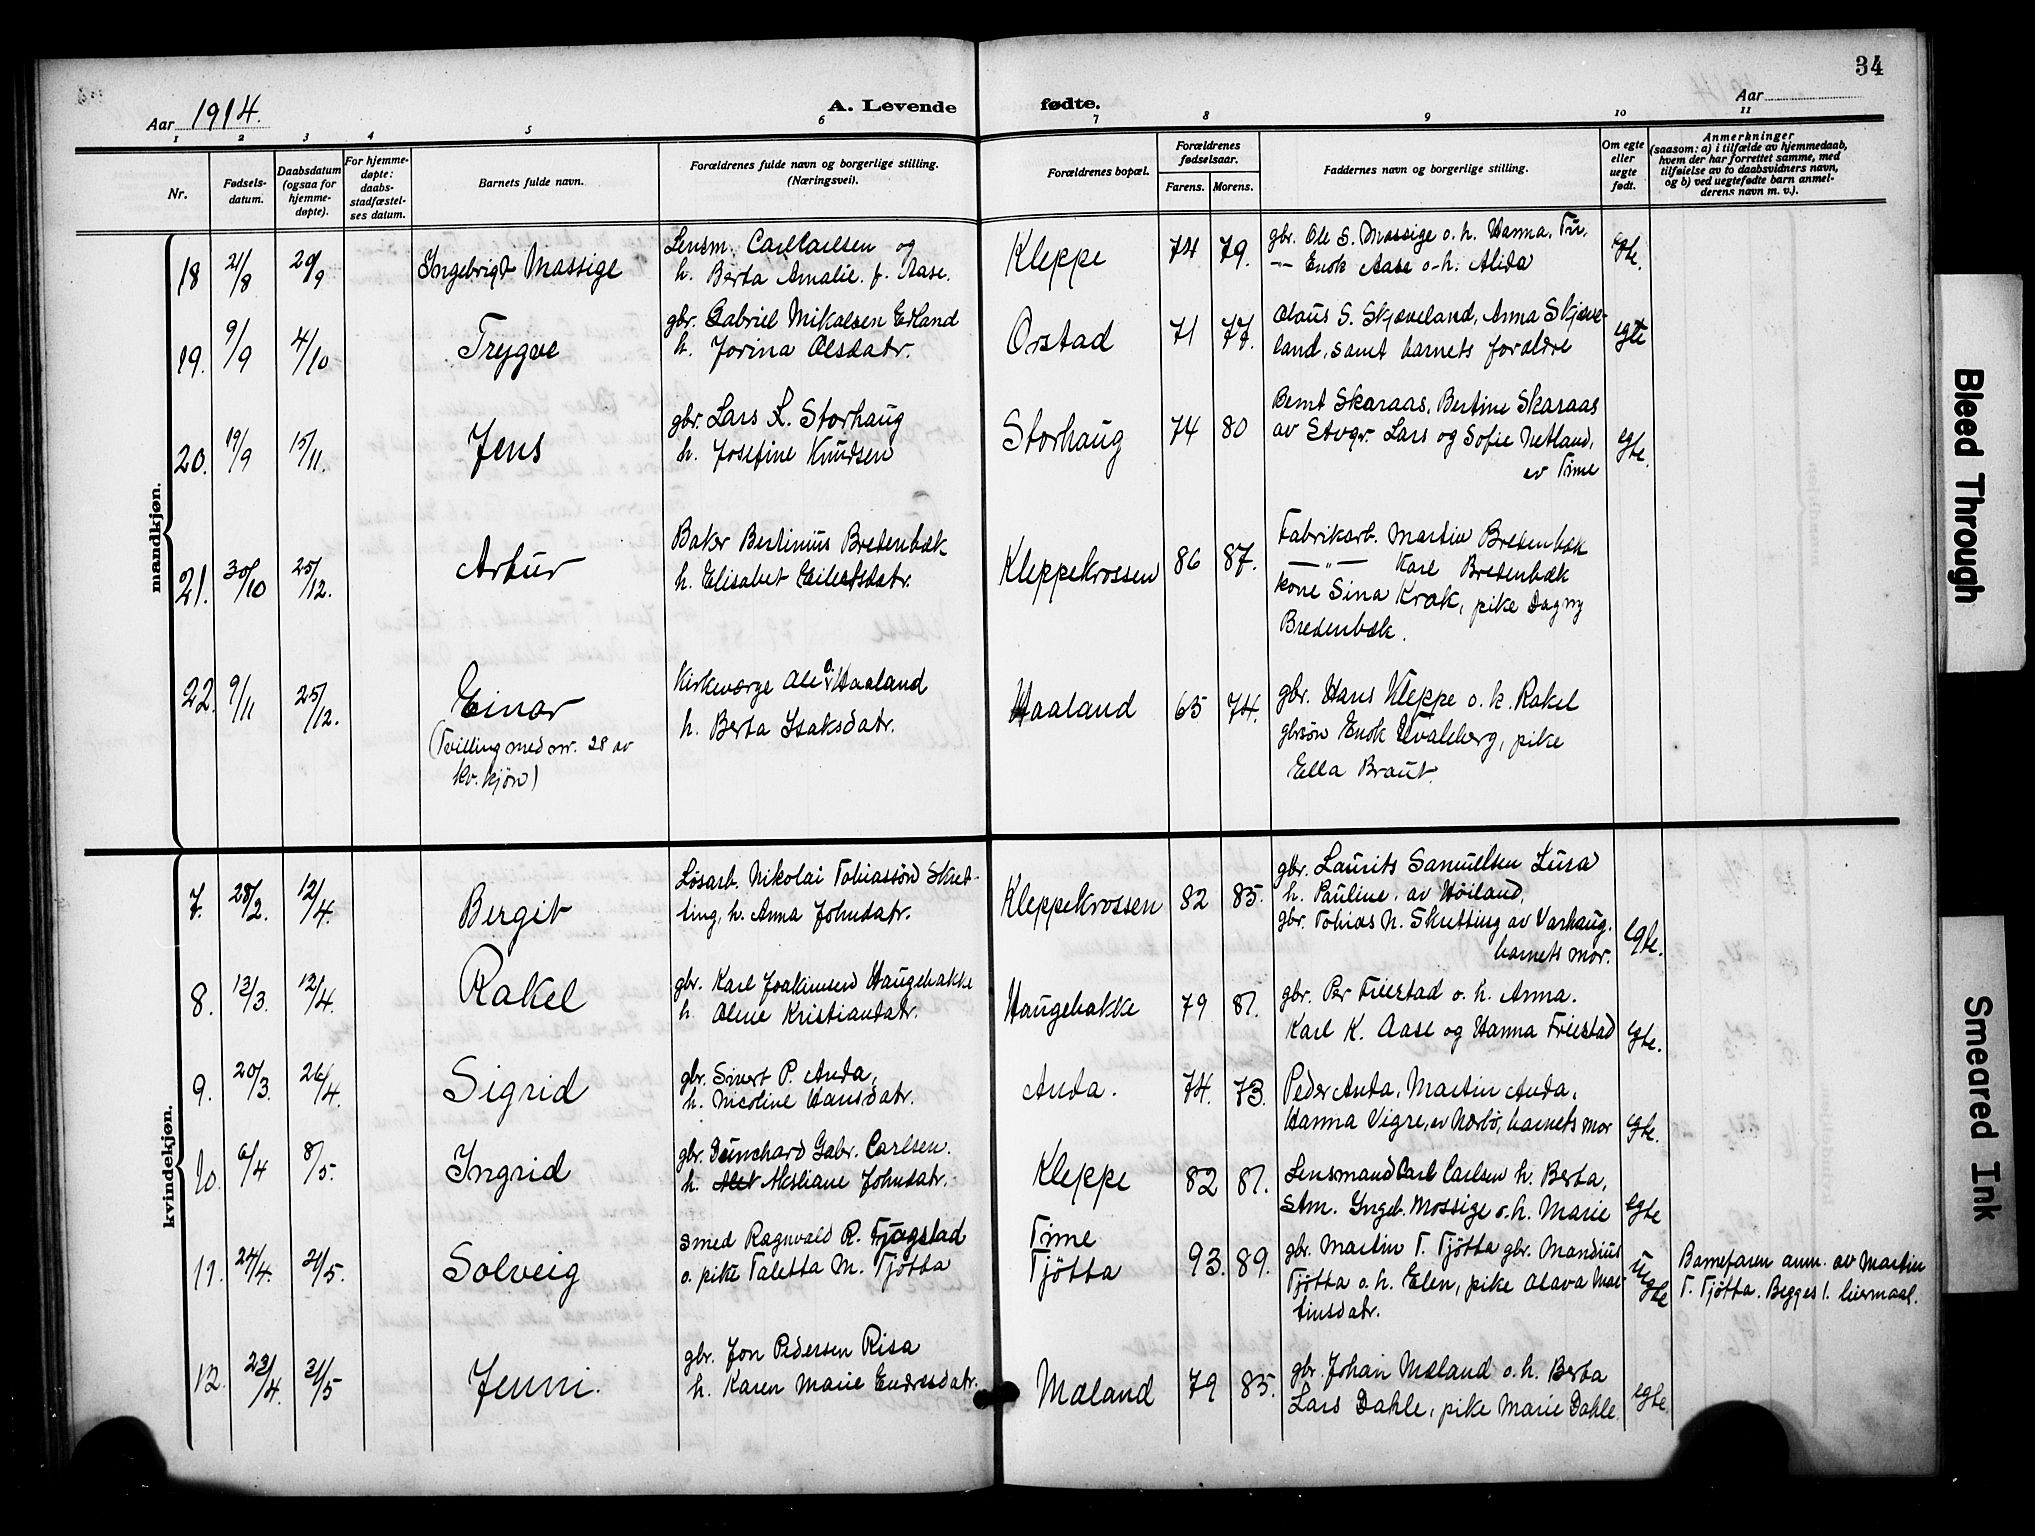 34
Aar 1914.
A. Levende fødte.
Aar
1 2 3 4 5 6 7 8 9 10 11
Nr.
Fødsels-
datum.
Daabsdatum
(ogsaa for
hjemme-
døpte).
For hjemme-
døpte:
daabs-
stadfæstel-
ses datum.
Barnets fulde navn.
Forældrenes fulde navn og borgerlige stilling.
(Næringsvei).
Forældrenes bopæl.
Forældrenes
fødselsaar.
Farens. Morens.
Faddernes navn og borgerlige stilling.
Om egte
eller
uegte
født.
Anmerkninger
(saasom: a) i tilfælde av hjemmedaab,
hvem der har forrettet samme, med
tilføielse av to daabsvidners navn,
og b) ved uegtefødte barn anmel-
derens navn m. v.).
mandkjøn.
18 21/8 20/9 Ingebrigt Massige
Lensm. Carl Carlsen og
h. Berta Amalie f. Aase.
Kleppe 74 79.
gbr. Ole S. Massige o. h. Hanna,
-"- Enok Aase o. h. Alida
egte.
19. 9/9 4/10 Trygve
gbr. Gabriel Mikalsen Erland
h. Jorina Olsdatr.
Orstad 71 77.
Olaus S. Skjæveland, Anna Skjæve-
land, samt barnets forældre
egte
20. 19/9 15/11. Jens
gbr. Lars L. Storhaug
h. Josefine Knudsen
Storhaug 74 80
Bernt Skaraas, Bertine Skaraas
av Stvgr. Lars og Sofie Netland,
av Time
egte.
21. 30/10 25/12. Artur
Baker Bertinius Bredenbæk
h. Elisabet Eilertsdatr.
Kleppekrossen 86 87.
Fabrikarb. Martin Bredenbæk
-"- Karl Bredenbæk
kone Sina Krak, pike Dagny
Bredenbæk.
22. 9/11 25/12. Einar
(Tvilling med nr. 28 av
kv.kjøn)
Kirkeværge Ole O. Haaland
h. Berta Isaksdatr.
Haaland 65 74.
gbr. Hans Kleppe o. h. Rakel
gbrsøn Enok Hvaleberg, pike
Ella Braut.
kvindekjøn.
7. 28/2. 12/4. Bergit
Løsarb. Nikolai Tobiassøn Skret-
ting, h. Anna Johnsdatr.
Kleppekrossen 82 85.
gbr. Laurits Samuelsen Lura
h. Pauline, av Høiland,
gbr. Tobias N. Skretting av Varhaug.
barnets mor.
egte.
8. 13/3. 12/4. Rakel
gbr. Karl Joakimsen Haugebakke
h. Olene Kristiansdatr.
Haugebakke 79 81.
gbr. Per Friestad o. h. Anna.
Karl K. Aase og Hanna Friestad
egte.
9. 20/3. 26/4. Sigrid
gbr. Sivert P. Anda,
h. Nicoline Hansdatr.
Anda. 74. 73.
Peder Anda, Martin Anda,
Hanna Vigre, av Nærbø, barnets mor
egte.
10. 6/4 8/5. Ingrid
gbr. Gabr. Carlsen.
h. Aksliane Johnsdatr.
Kleppe 82 81.
Lensmand Carl Carlsen h. Berta,
Stm. Ingeb. Mossige o. h. Marie
egte
11. 24/4. 21/5. Solveig
Smed Ragnvald R. Fjogstad
o. pike Taletta M. Tjøtta
Time
Tjøtta 93. 89.
gbr. Martin T. Tjøtta gbr. Mandius
Tjøtta o. h. Elen, pike Olava Mar-
tinsdatr.
uegte
Barnefaren anm. av Martin
T. Tjøtta. Begges 1. leiermaal.
12. 23/4. 21/5 Jenni.
gbr. Jon Pedersen Risa
h. Karen Marie Endresdatr.
Mæland 79 85.
gbr. Johan Mæland o. h. Berta
Lars Dahle, pike Marie Dahle.
egte.
Bleed Through
Smeared Ink